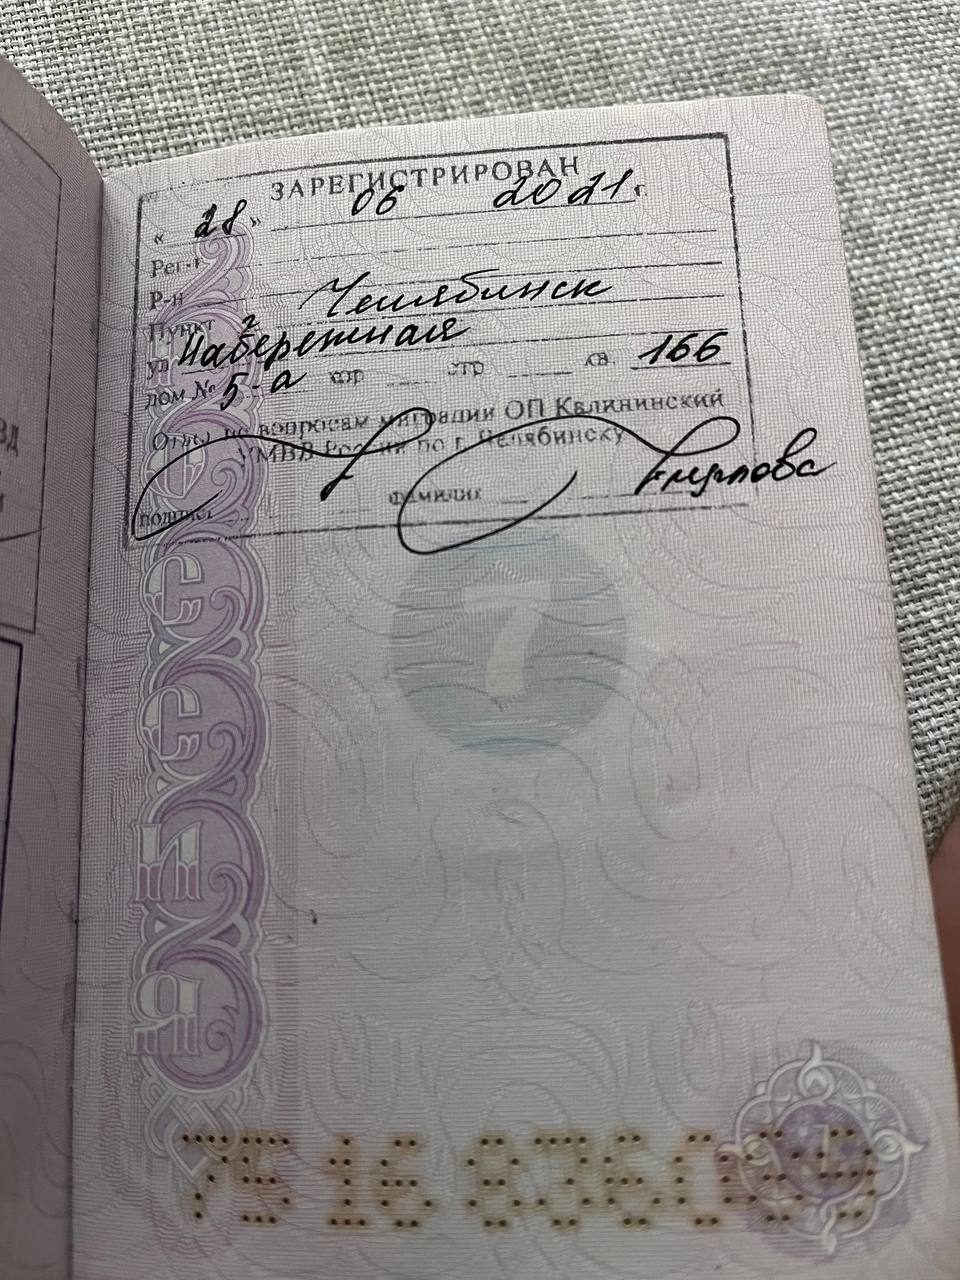 ЗАРЕГИСТРИРОВАН
« 28 » 06 2021 г.
Рег-н
Р-н
Пункт г Челябинск
ул Набережная
дом № 5-а кор стр кв 166
Отдел по вопросам миграции ОП Калининский
УМВД России по г. Челябинску
подпись фамилия
7
РОССИЯ
75 16